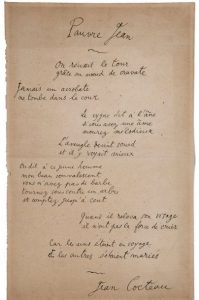 Pauvre Jean
On refuse le tour
grâce au nœud de cravate
Jamais un acrobate
ne tombe dans la cour
Le cygne dit à l'âne
si vous avez une âme
mourez mélodieux
L'aveugle devint sourd
et il y voyait mieux
On dit à ce jeune homme
mon beau convalescent
vous n'avez pas de barbe
tournez vous contre un arbre
et comptez jusqu'à cent
Quand il releva son visage
il n'eut pas la force de crier
Car les uns étaient en voyage
et les autres s'étaient mariés
Jean Cocteau